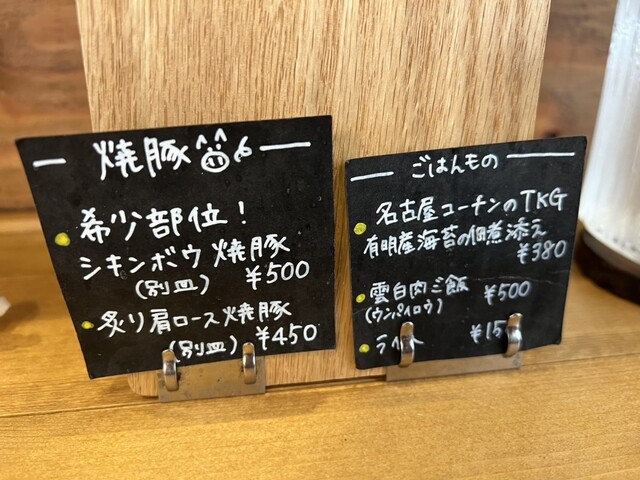 焼豚
希少部位!
シキンボウ焼豚
(別皿) ¥500
炙り肩ロース焼豚
(別皿) ¥450
ごはんもの
名古屋コーチンのTKG
有明産海苔の佃煮添え
¥380
雲白肉ご飯 ¥500
(ウンパイロウ)
¥15